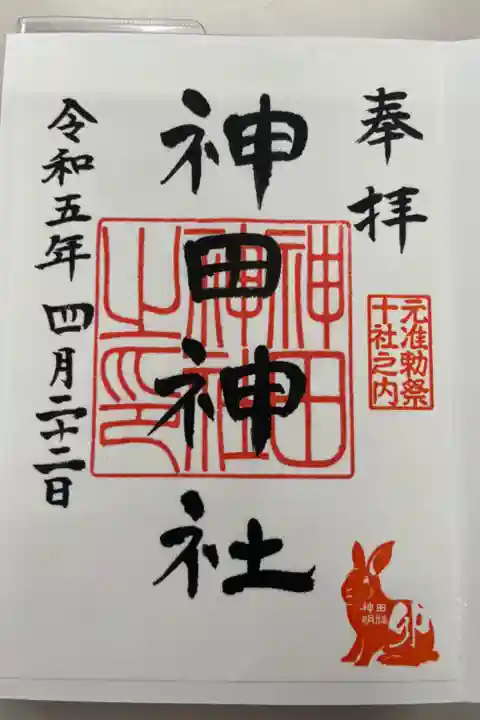 奉拝
元准勅祭
十社之内
神田神社
神田
神社
之印
令和五年四月二十二日
神田
明神
卯